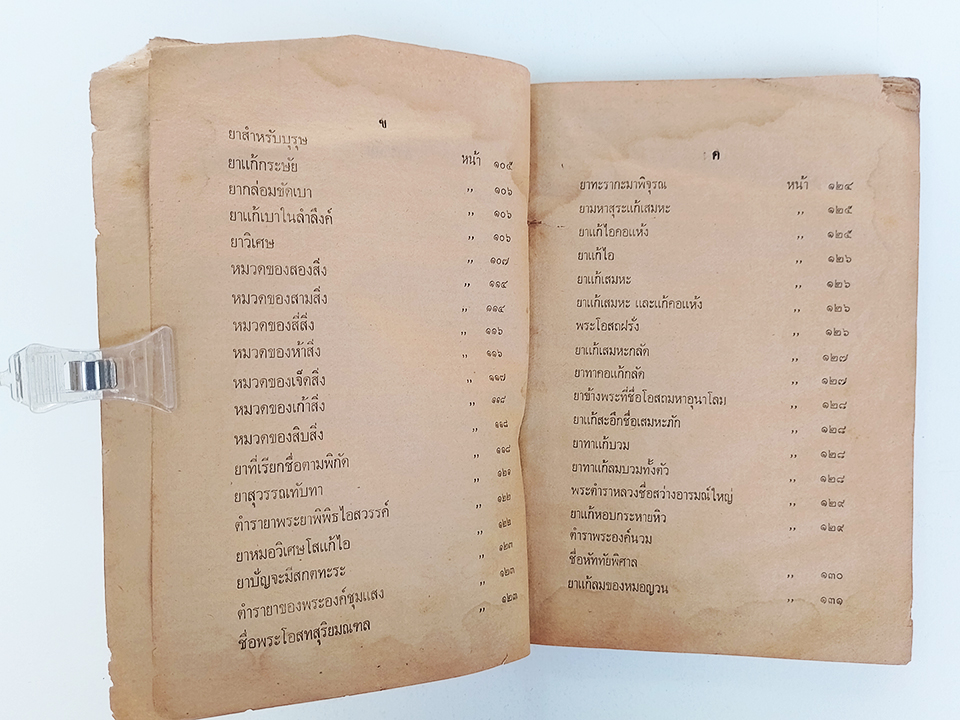 ข
ยาสำหรับบุรุษ หน้า ๑๐๕
ยาแก้กระษัย ,, ๑๐๖
ยากล่อมขัดเบา ,, ๑๐๖
ยาแก้เบาในลำลึงค์ ,, ๑๐๖
ยาวิเศษ ,, ๑๐๗
หมวดของสองสิ่ง ,, ๑๑๔
หมวดของสามสิ่ง ,, ๑๑๔
หมวดของสี่สิ่ง ,, ๑๑๖
หมวดของห้าสิ่ง ,, ๑๑๖
หมวดของเจ็ดสิ่ง ,, ๑๑๗
หมวดของเก้าสิ่ง ,, ๑๑๘
หมวดของสิบสิ่ง ,, ๑๑๘
ยาที่เรียกชื่อตามพิกัด ,, ๑๑๘
ยาสุวรรณทับทา ,, ๑๒๑
ตำรายาพระยาพิพิธไอสวรรค์ ,, ๑๒๒
ยาหมอวิเศษโสแก้ไอ ,, ๑๒๒
ยาปัญจะมีสกตทะระ ,, ๑๒๓
ตำรายาของพระองค์ชุมแสง ,, ๑๒๓
ชื่อพระโอสทสุริยมณฑล ,, ๑๒๓
ค
ยาทะรากะมาพิจุรณ หน้า ๑๒๔
ยามหาสุระแก้เสมหะ ,, ๑๒๕
ยาแก้ไอคอแห้ง ,, ๑๒๕
ยาแก้ไอ ,, ๑๒๖
ยาแก้เสมหะ ,, ๑๒๖
ยาแก้เสมหะ และแก้คอแห้ง ,, ๑๒๖
พระโอสถฝรั่ง ,, ๑๒๖
ยาแก้เสมหะกลัด ,, ๑๒๗
ยาทาคอแก้กลัด ,, ๑๒๗
ยาข้างพระที่ชื่อโอสถมหาอุนาโลม ,, ๑๒๘
ยาแก้สะอึกชื่อเสมหะภัก ,, ๑๒๘
ยาทาแก้บวม ,, ๑๒๘
ยาทาแก้ลมบวมทั้งตัว ,, ๑๒๘
พระตำราหลวงชื่อสว่างอารมณ์ใหญ่ ,, ๑๒๙
ยาแก้หอบกระหายหิว ,, ๑๒๙
ตำราพระองค์นวม
ชื่อหัททัยพิศาล ,, ๑๓๐
ยาแก้ลมของหมอญวน ,, ๑๓๑